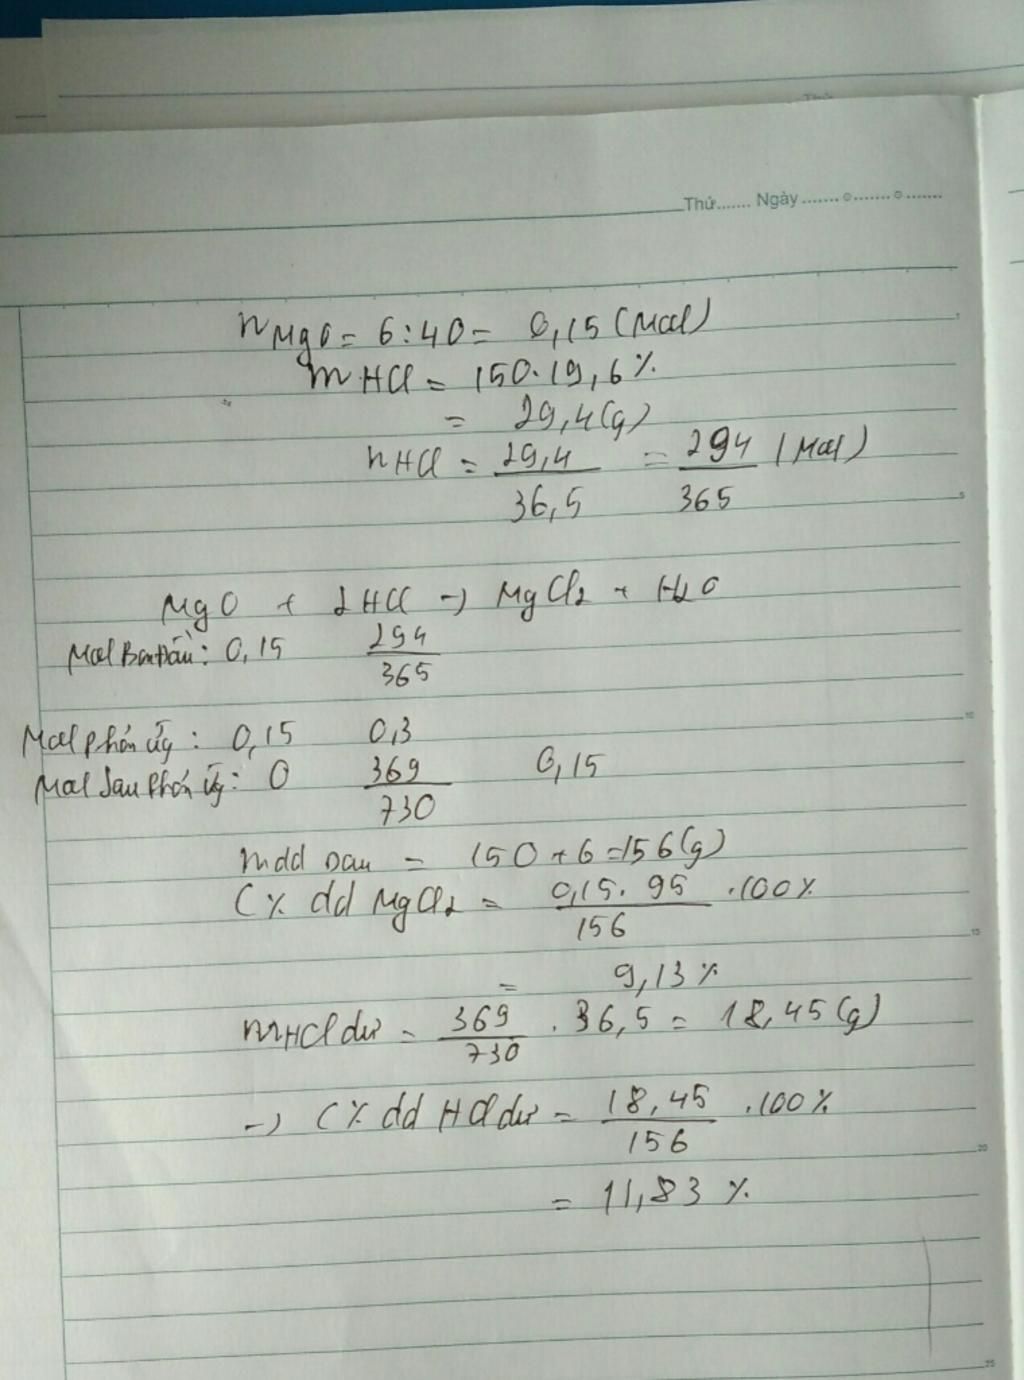 Thứ....... Ngày ....... o ....... o .......
nMgO = 6:40 = 0,15 (Mol)
mHCl = 150.19,6%
= 29,4(g)
nHCl = 29,4/36,5 = 294/365 (Mol)
MgO + 2HCl -> MgCl2 + H2O
Mol Ban Đầu: 0,15 294/365
Mol phản ứng: 0,15 0,3
Mol sau phản ứng: 0 369/730 0,15
mdd sau = 150 + 6 = 156(g)
C% dd MgCl2 = 0,15.95/156 .100%
= 9,13%
mHCl dư = 369/730 . 36,5 = 18,45(g)
-> C% dd HCl dư = 18,45/156 .100%
= 11,83 %